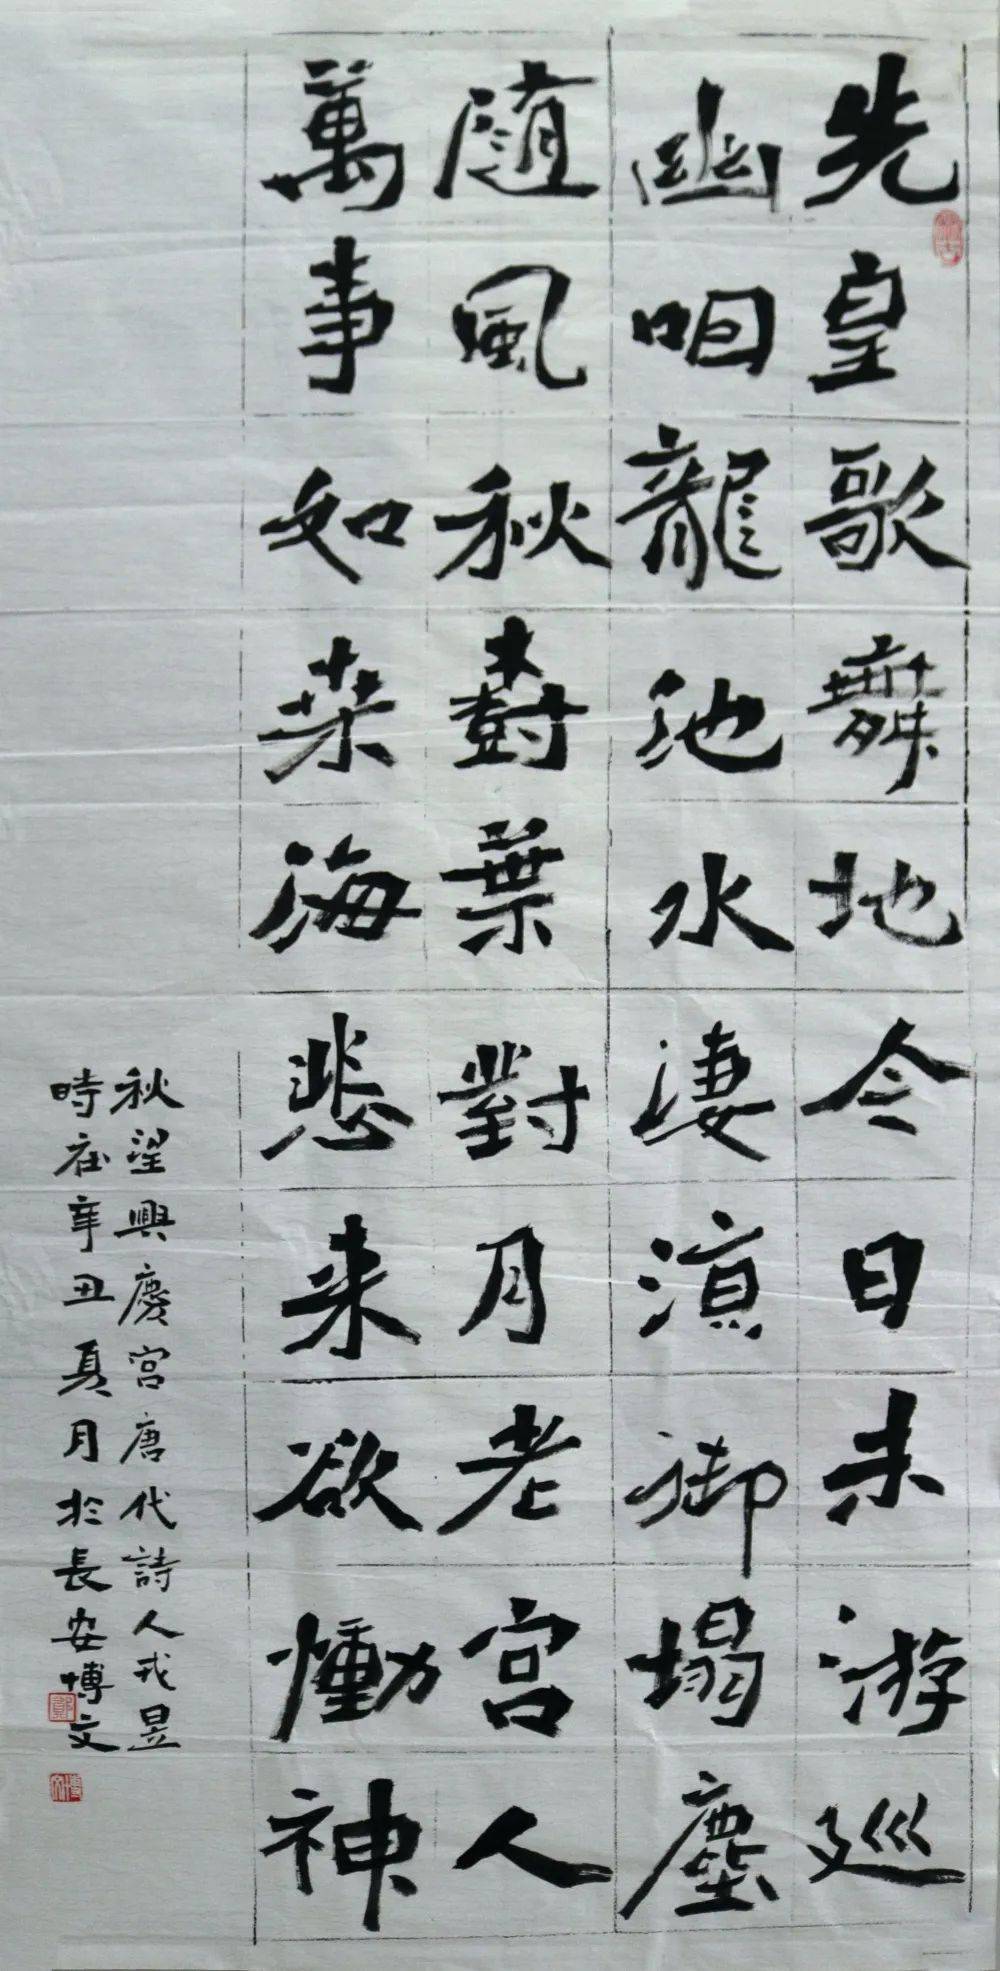 先皇歌舞地今日未游巡
幽咽龍池水凄涼御塌塵
随風秋樹葉對月老宫人
萬事如桒海悲来欲慟神
秋望興慶宫唐代詩人戎昱
時在辛丑夏月於長安博文